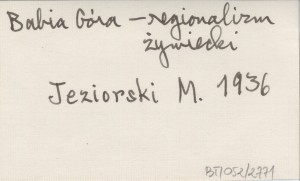 Babia Góra – regionalizm
żywiecki
Jeziorski M. 1936
BT/052/2771